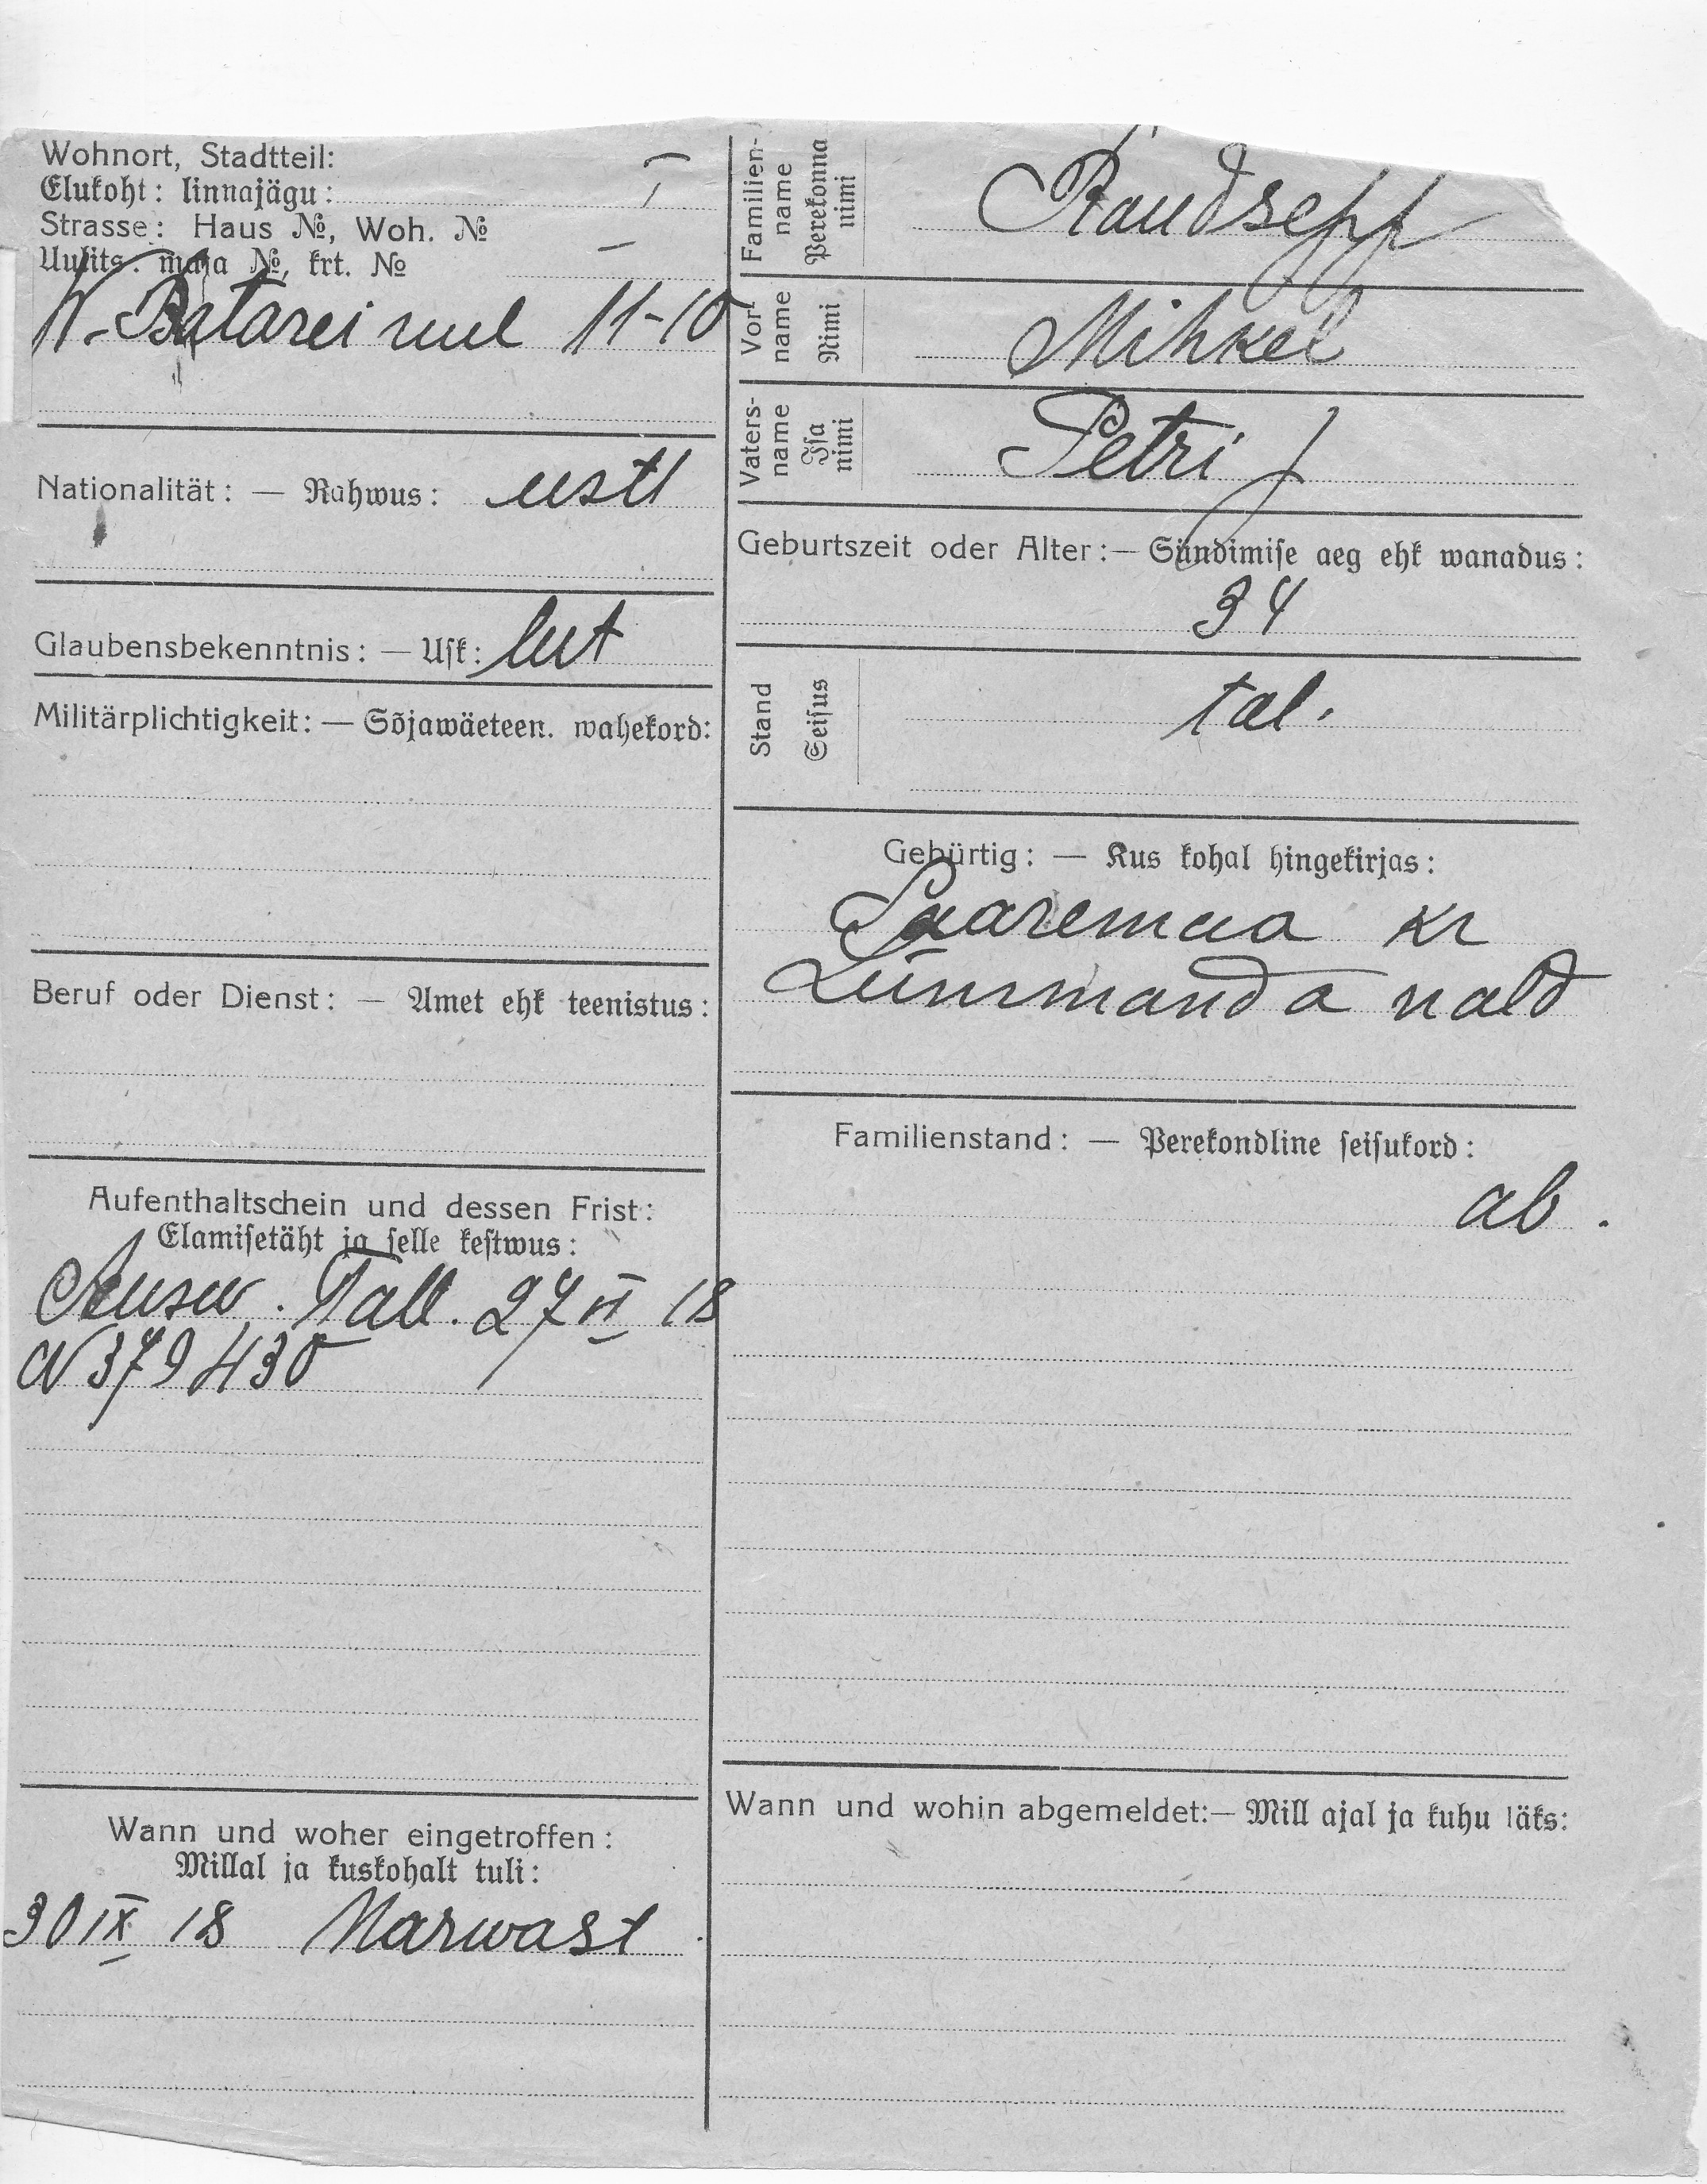 Wohnort, Stadtteil:
Elukoht: linnajägu: I
Strasse: Haus №, Woh. №
Uulits: maja №, krt. №
W. Batarei uul 11-10
Nationalität: — Rahwus: eestl
Glaubensbekenntnis: — Usk: lut
Militärplichtigkeit: — Sõjawäeteen. wahekord:
Beruf oder Dienst: — Amet ehk teenistus:
Aufenthaltschein und dessen Frist:
Elamisetäht ja selle kestwus:
Tall. 27 VI 18
N 379430
Wann und woher eingetroffen:
Millal ja kuskohalt tuli:
30 IX 18 Narwast
Familien-
name
Perekonna
nimi
Raudsepp
Vor-
name
Nimi
Mihkel
Vaters-
name
Isa
nimi
Petri
Geburtszeit oder Alter: — Sündimise aeg ehk wanadus:
34
Stand
Seisus
tal.
Gebürtig: — Kus kohal hingekirjas:
Saaremaa kr
Lümmanda vald
Familienstand: — Perekondline seisukord:
ab.
Wann und wohin abgemeldet: — Mill ajal ja kuhu läks: